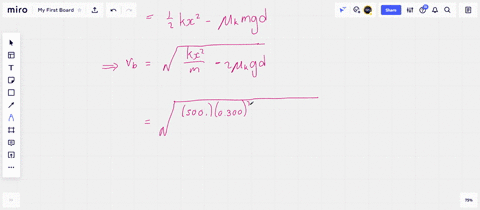 miro My First Board Share
= 1/2 kx² - μₖ mgd
⟹ v_b = √(kx²/m - 2μₖgd)
= √((500.)(0.300)²
79%